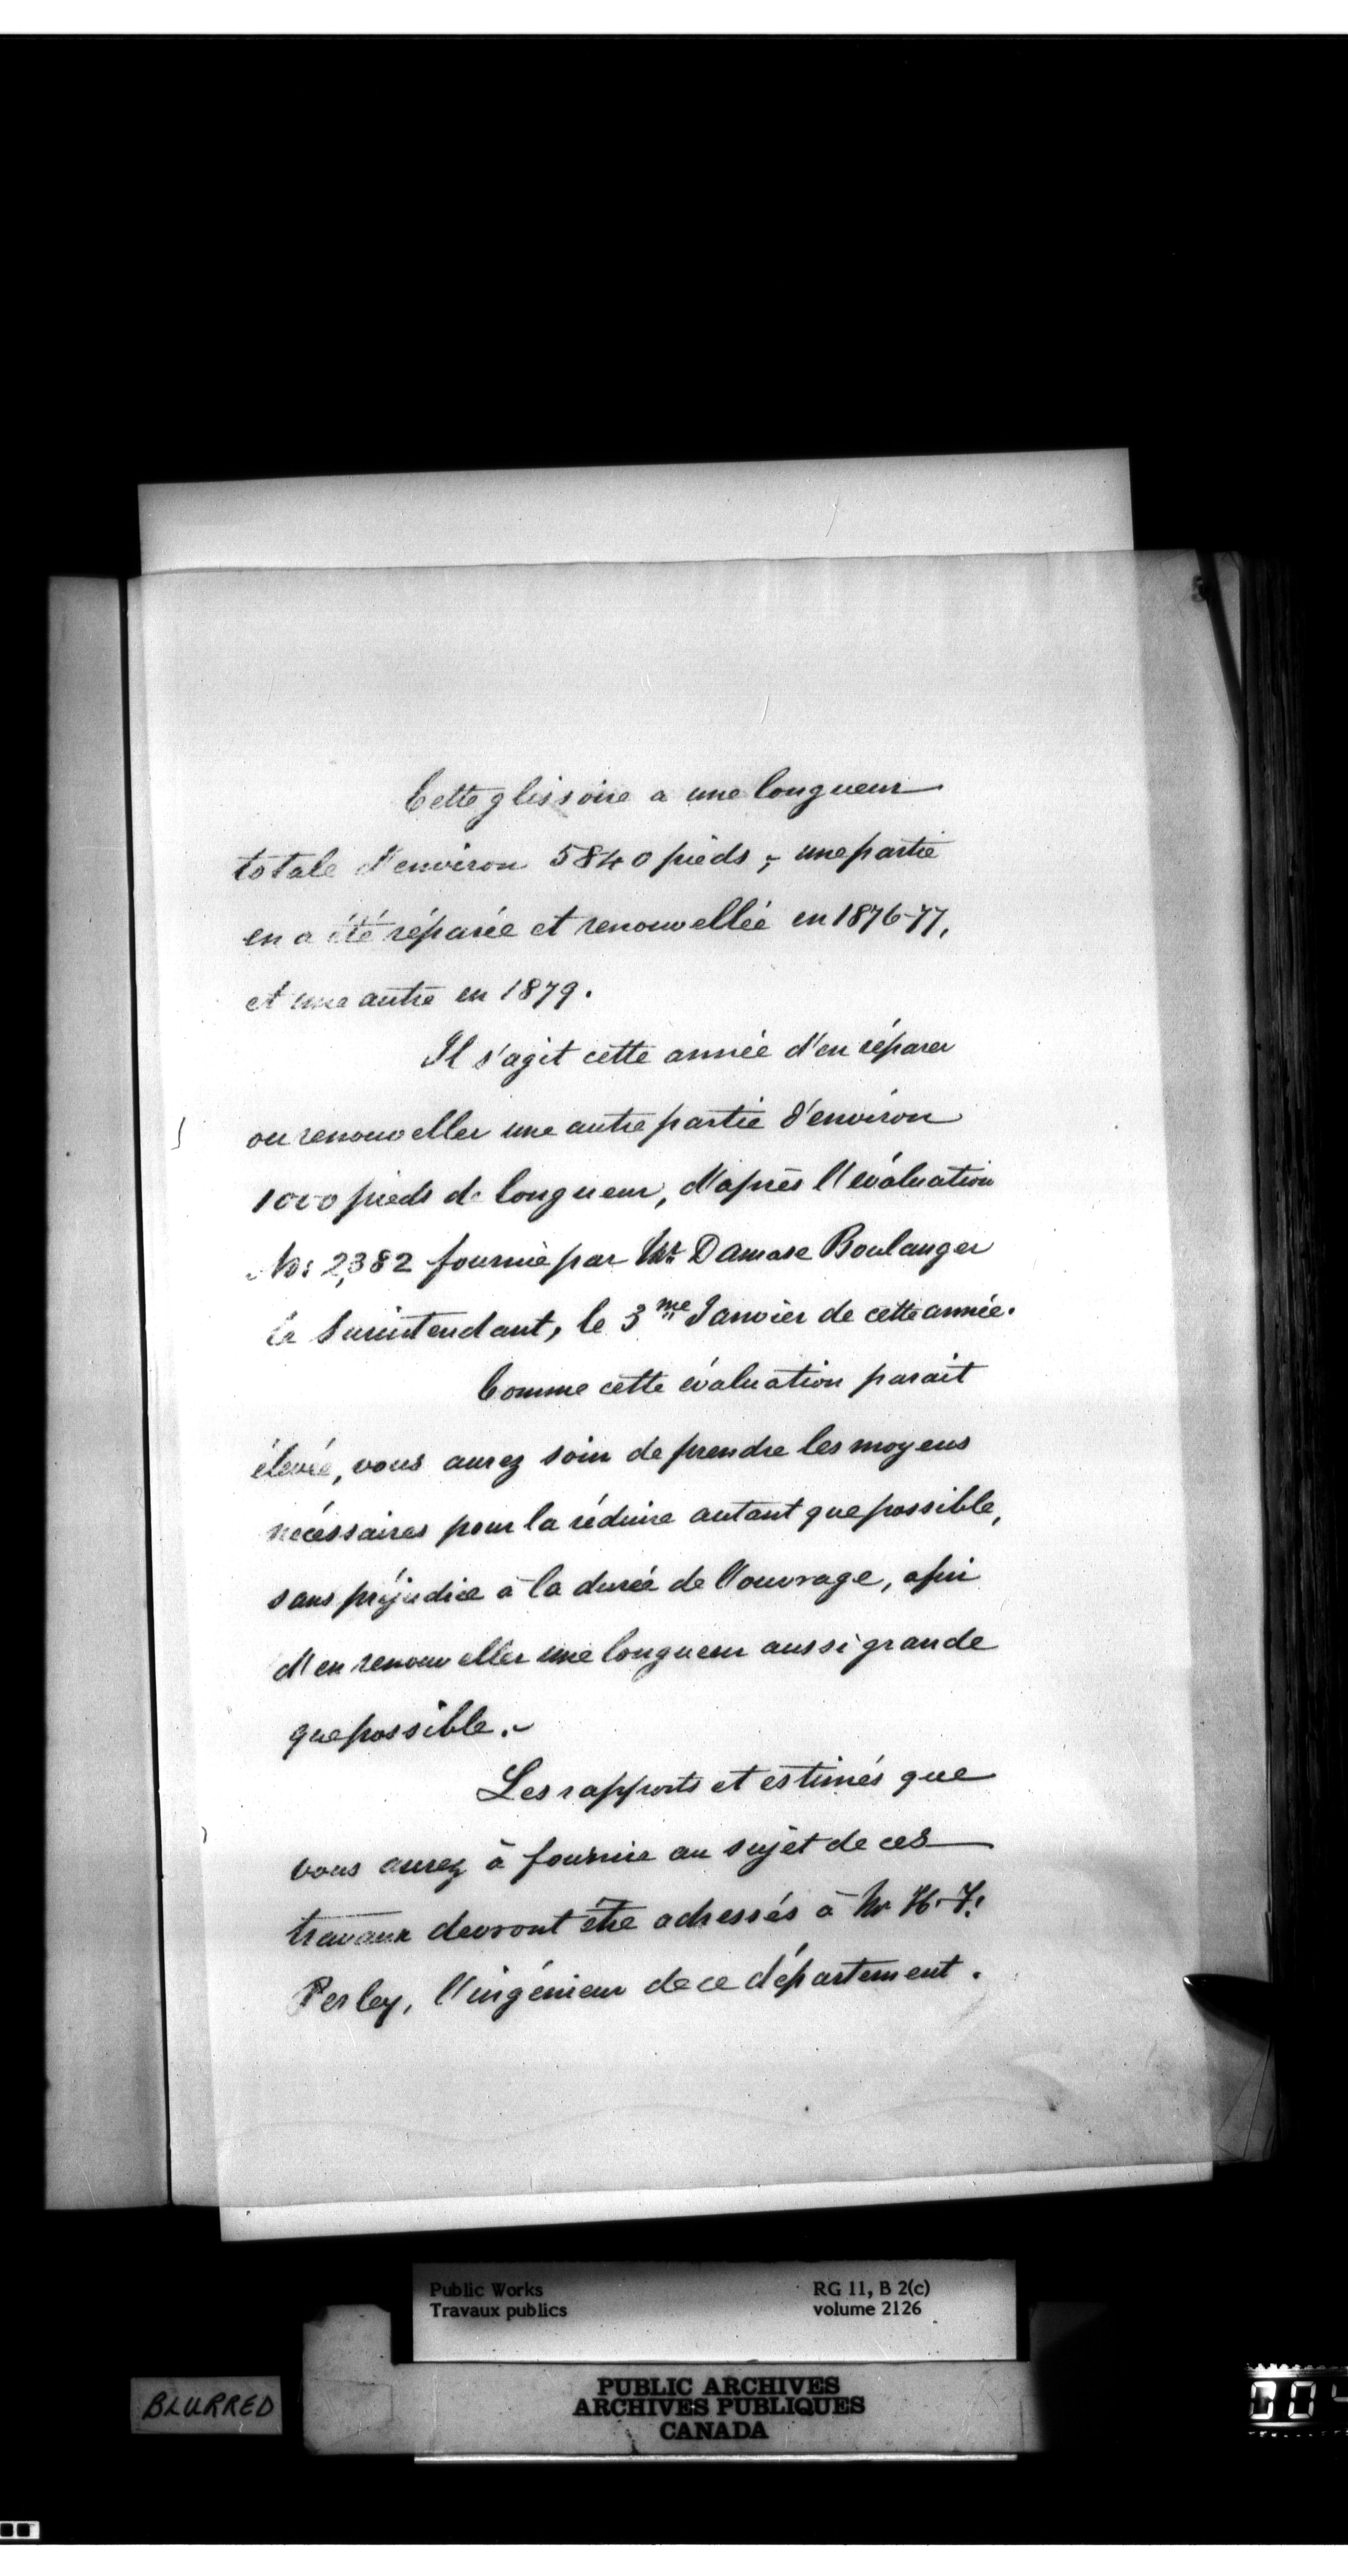 Cette glissoire a une longueur
totale d'environ 5840 pieds; une partie
en a été réparée et renouvellée en 1876-77,
et une autre en 1879.
Il s'agit cette année d'en réparer
ou renouveller une autre partie d'environ
1000 pieds de longueur, d'après l'évaluation
No: 2,382 fournie par Mr. Damase Boulanger
le Surintendant, le 3me Janvier de cette année.
Comme cette évaluation parait
élevée, vous aurez soin de prendre les moyens
nécéssaires pour la réduire autant que possible,
sans préjudice à la durée de l'ouvrage, afin
d'en renouveller une longueur aussi grande
que possible.
Les rapports et estimés que
vous aurez à fournir au sujet de ces
travaux devront être adressés à Mr H. F.
Perley, l'ingénieur de ce département.
Public Works RG 11, B 2(c)
Travaux publics volume 2126
BLURRED
PUBLIC ARCHIVES
ARCHIVES PUBLIQUES
CANADA